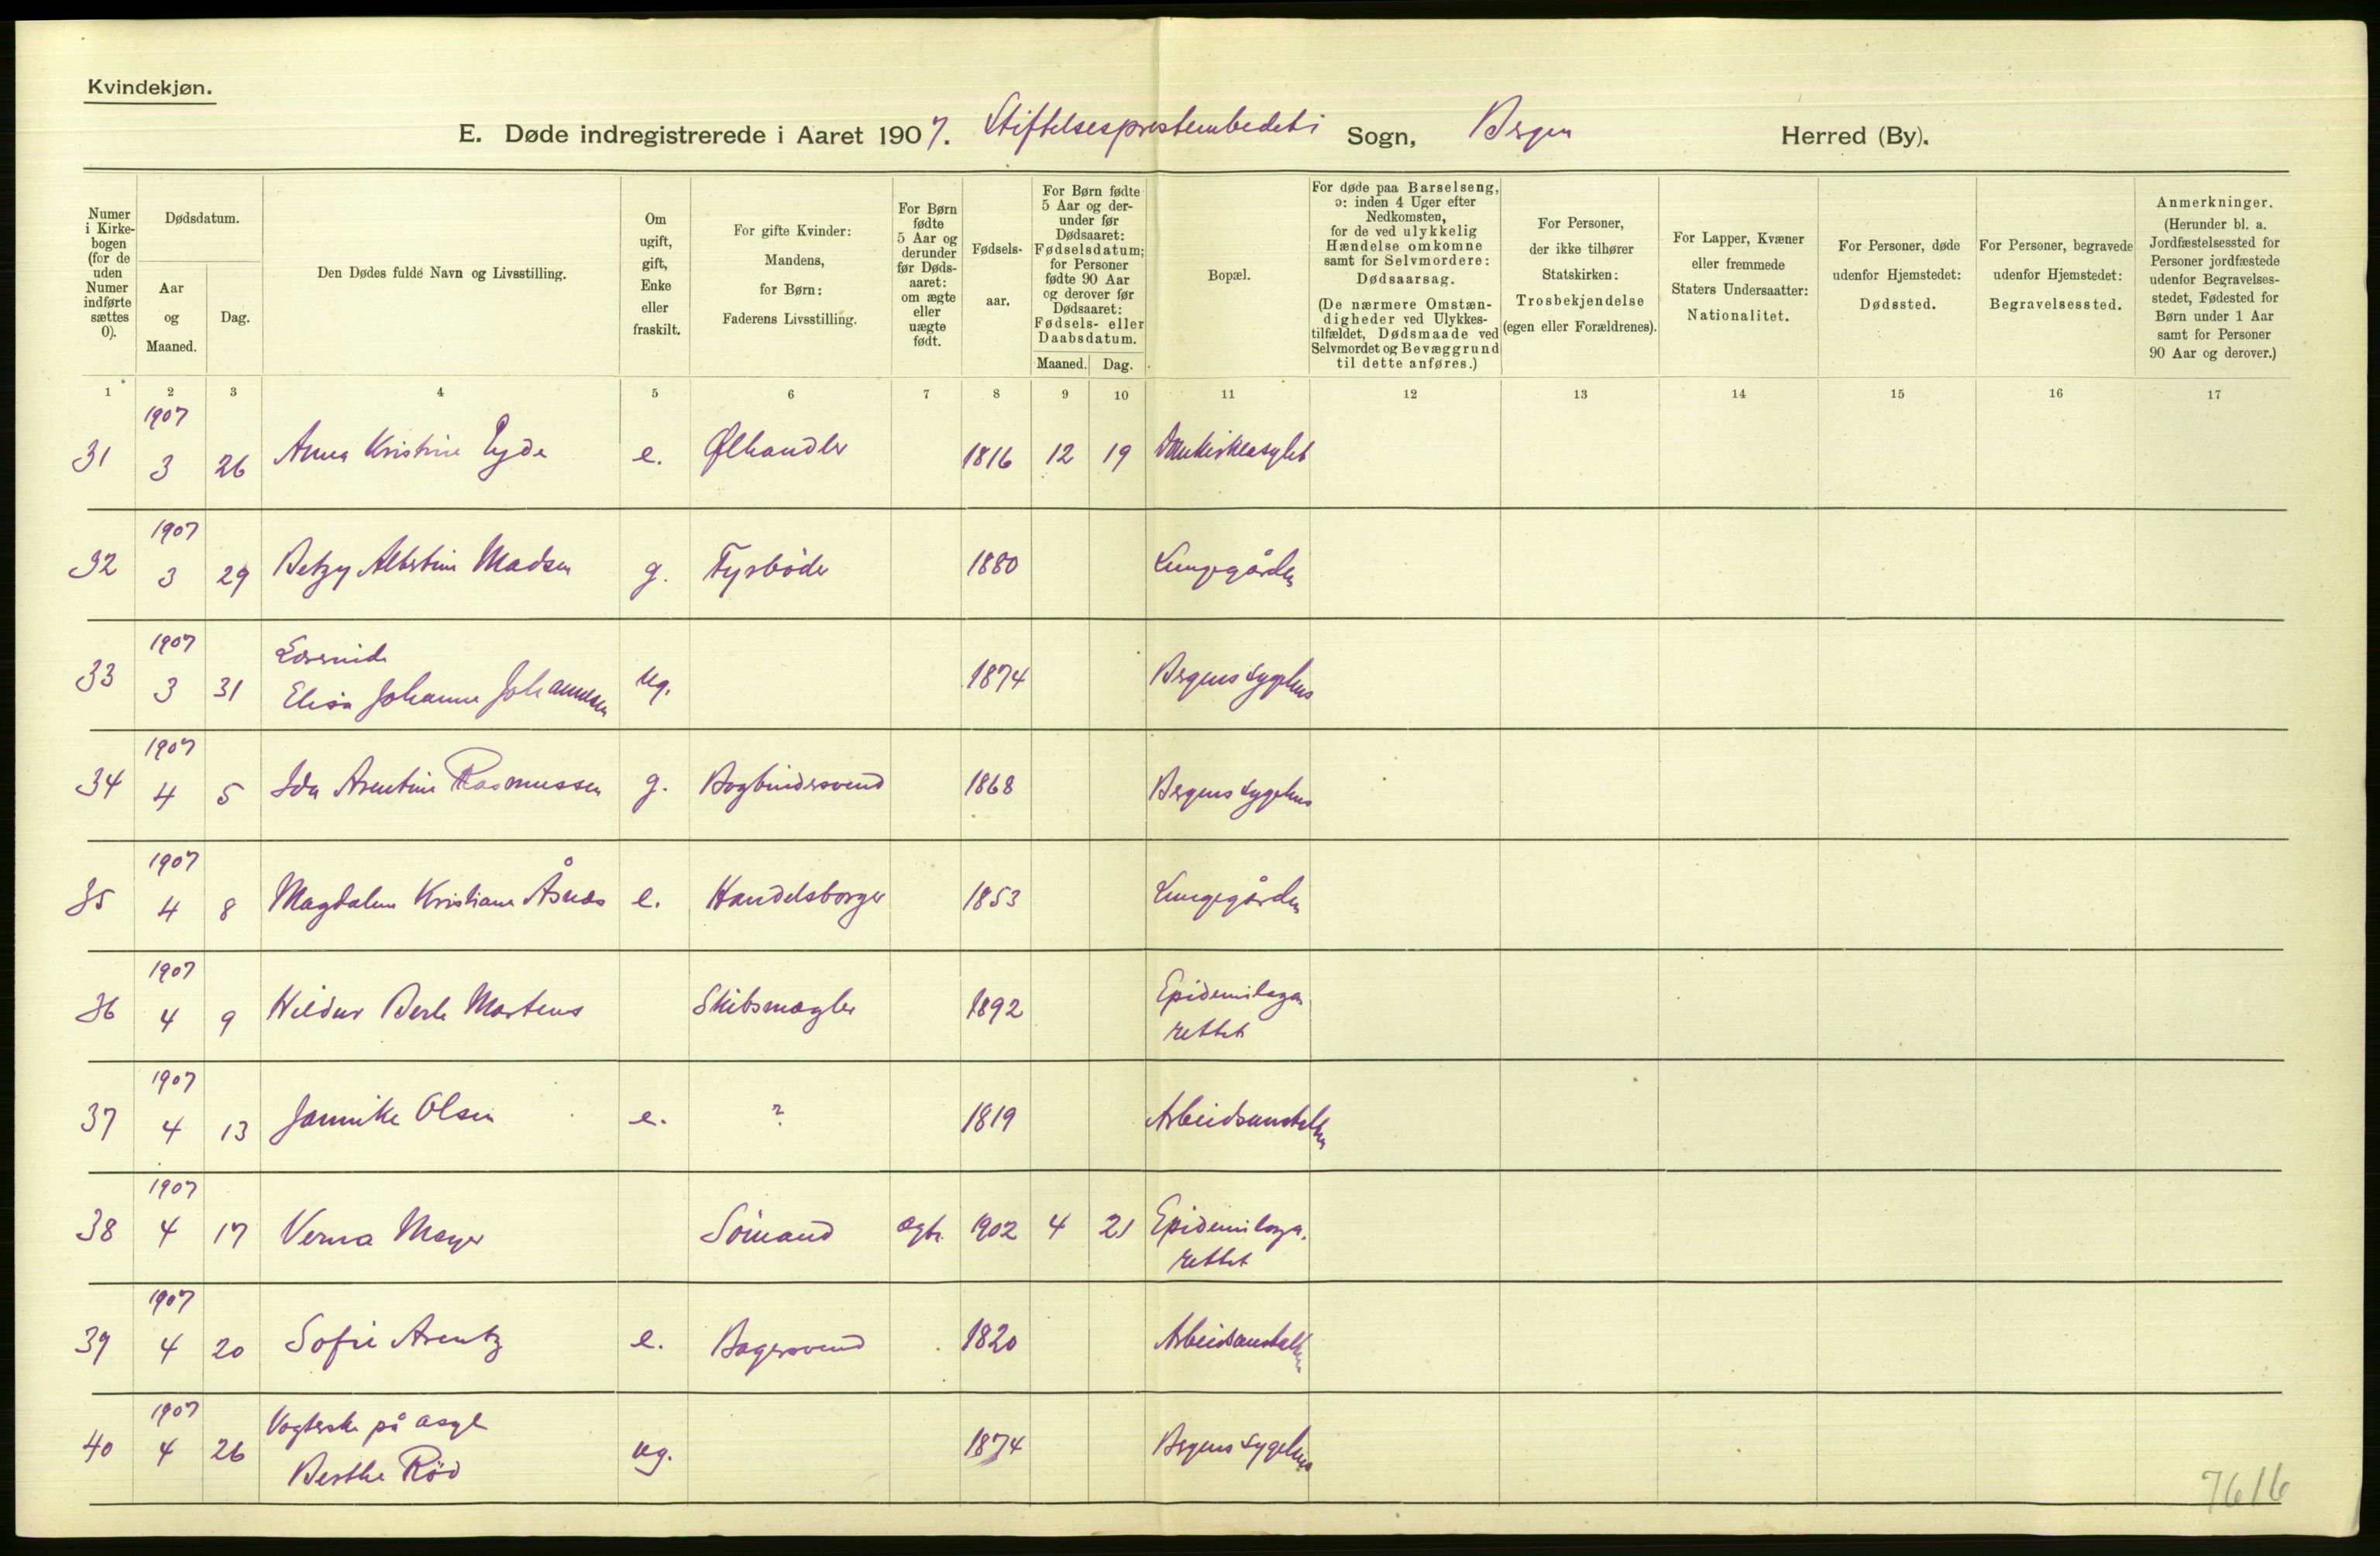 Kvindekjøn.
E. Døde indregistrerede i Aaret 1907. Stiftelsesprestembedet i Sogn, Bergen Herred (By).
Numer i Kirkebogen (for de uden Numer indførte sættes 0).
Dødsdatum.
Aar og Maaned.
Dag.
Den Dødes fulde Navn og Livsstilling.
Om ugift, gift, Enke eller fraskilt.
For gifte Kvinder: Mandens, for Børn: Faderens Livsstilling.
For Børn fødte 5 Aar og derunder før Dødsaaret: om ægte eller uægte født.
Fødselsaar.
For Børn fødte 5 Aar og derunder før Dødsaaret: Fødselsdatum; for Personer fødte 90 Aar og derover før Dødsaaret: Fødsels- eller Daabsdatum.
Maaned. Dag.
Bopæl.
For døde paa Barselseng, ɔ: inden 4 Uger efter Nedkomsten, for de ved ulykkelig Hændelse omkomne samt for Selvmordere: Dødsaarsag.
(De nærmere Omstændigheder ved Ulykkestilfældet, Dødsmaade ved Selvmordet og Bevæggrund til dette anføres.)
For Personer, der ikke tilhører Statskirken: Trosbekjendelse (egen eller Forældrenes).
For Lapper, Kvæner eller fremmede Staters Undersaatter: Nationalitet.
For Personer, døde udenfor Hjemstedet: Dødssted.
For Personer, begravede udenfor Hjemstedet: Begravelsessted.
Anmerkninger. (Herunder bl. a. Jordfæstelsessted for Personer jordfæstede udenfor Begravelsesstedet, Fødested for Børn under 1 Aar samt for Personer 90 Aar og derover.)
1 2 3 4 5 6 7 8 9 10 11 12 13 14 15 16 17
1907
31 3 26 Anna Kristine e. Ølhandler 1816 12 19 Domkirkeasylet
1907
32 3 29 Betzy Albertine Madsen g. Fyrbøder 1880 Lungegården
1907
Lærerinde
33 3 31 Elisa Johanne Johannesen ug. 1874 Bergens Sygehus
1907
34 4 5 Ida Arentine Rasmussen g. Bogbindersvend 1868 Bergens Sygehus
1907
35 4 8 Magdalene Kristiane Åsnæs e. Handelsborger 1853 Lungegården
1907
36 4 9 Hildur Berle Martens Skibsmægler 1892 Epidemilaza
rettet
1907
37 4 13 Jannike Olsen e. ? 1819 Arbeidsanstalten
1907
38 4 17 Verna Meyer Sömand ægte 1902 4 21 Epidemilaza.
rettet
1907
39 4 20 Sofie Arentz e. Bagersvend 1820 Arbeidsanstalten
1907
Vogterske på asyl
40 4 26 Berthe Röd ug. 1874 Bergens Sygehus
7616